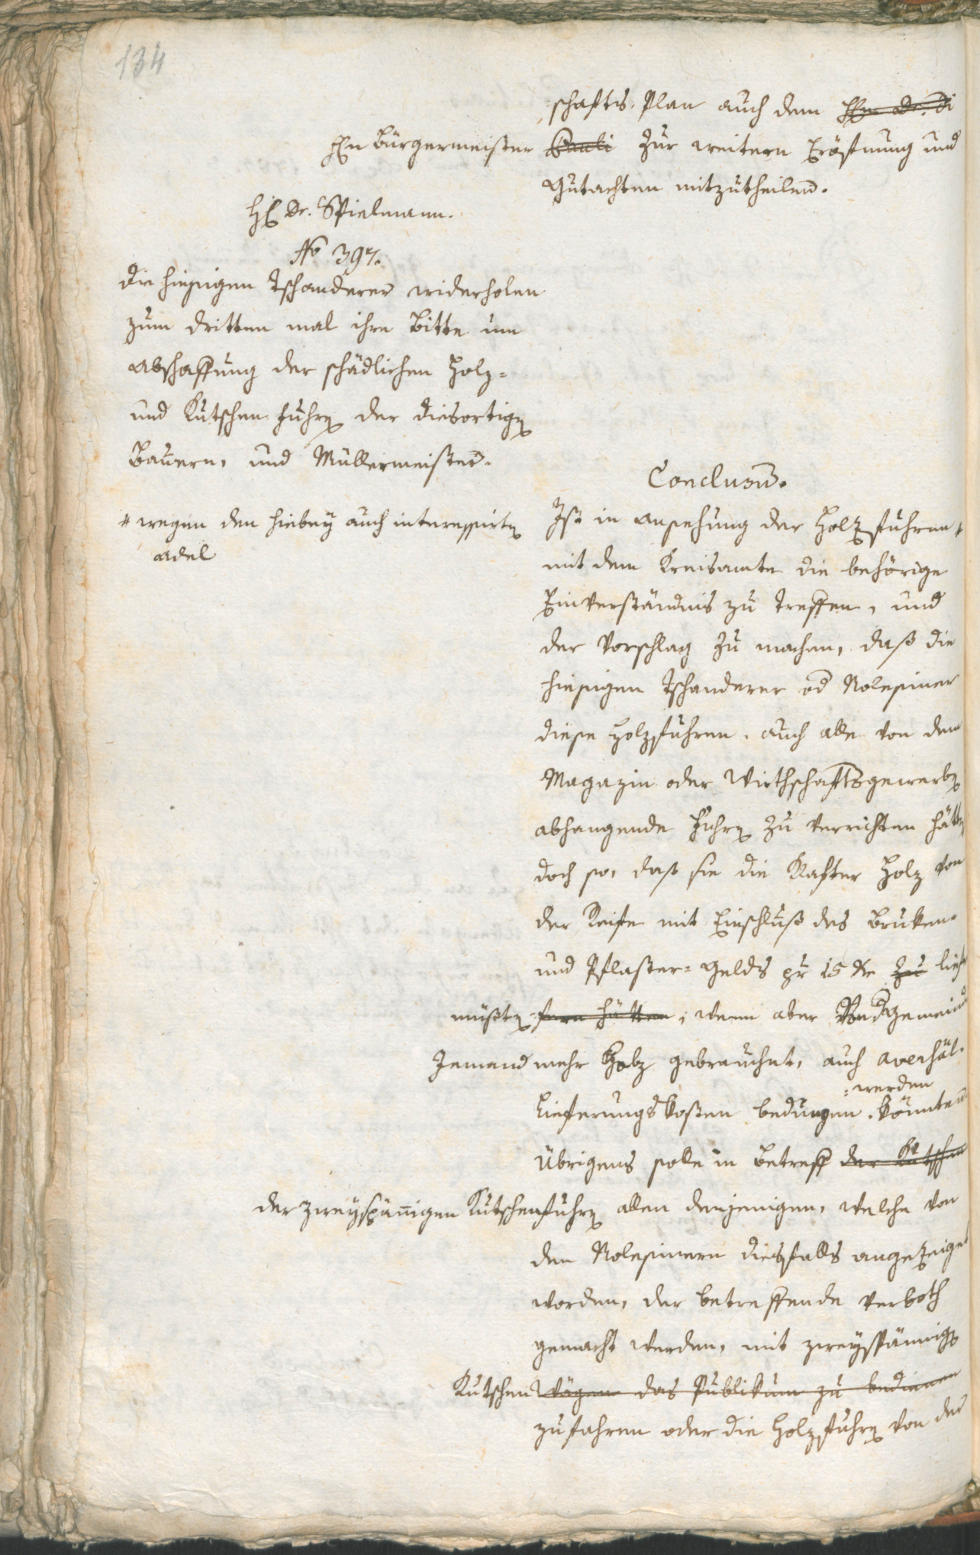 134
schafts Plan auch dem H̶n̶ ̶D̶r̶.̶ ̶d̶i̶
Hn Bürgermeister zur weitern Eröffnung und
Gutachten mitzutheilen.
H Dr. Spielmann.
No 397.
Die hiesigen Tschanderer widerholen
zum dritten mal ihre Bitte um
Abschaffung der schädlichen Holz-
und Kutschen fuhren der diesortigen
Bauern, und Müllermeister.
Conclusum.
Ist in ansehung der Holz fuhren *
* wegen den hiebey auch interessirten
Adel
mit dem Kreisamte die behörige
Einverständnis zu treffen, und
der Vorschlag zu machen, daß die
hiesigen Tschanderer od Rolesiner
diese Holzfuhren, auch alle von dem
Magazin oder Wirthschaftsgewerben
abhangende Fuhren zu verrichten hätten
doch so, daß sie die Klafter Holz von
der Reife mit Einschluß des Bruken-
und Pflaster-Gelds pr 15 Kr z̶u̶ lief
müßten f̶e̶r̶n̶ ̶h̶ä̶t̶t̶e̶n̶, wenn aber
Jemand mehr Holz gebrauchet, auch
werden
Lieferungskosten bedungen könnten
Übrigens solle in Betreff d̶e̶r̶ ̶K̶u̶t̶s̶c̶h̶e̶n̶
der zweyspännigen Kutschenfuhren allen denjenigen, welche von
den Rolesinern diesfalls angezeiget
worden, der betreffende Verboth
gemacht werden, mit zweyspännigen
Kutschen W̶ä̶g̶e̶n̶ ̶d̶a̶s̶ ̶P̶u̶b̶l̶i̶k̶u̶m̶ ̶z̶u̶ ̶b̶e̶d̶i̶e̶n̶e̶n̶
zufahren oder die Holzfuhren von der